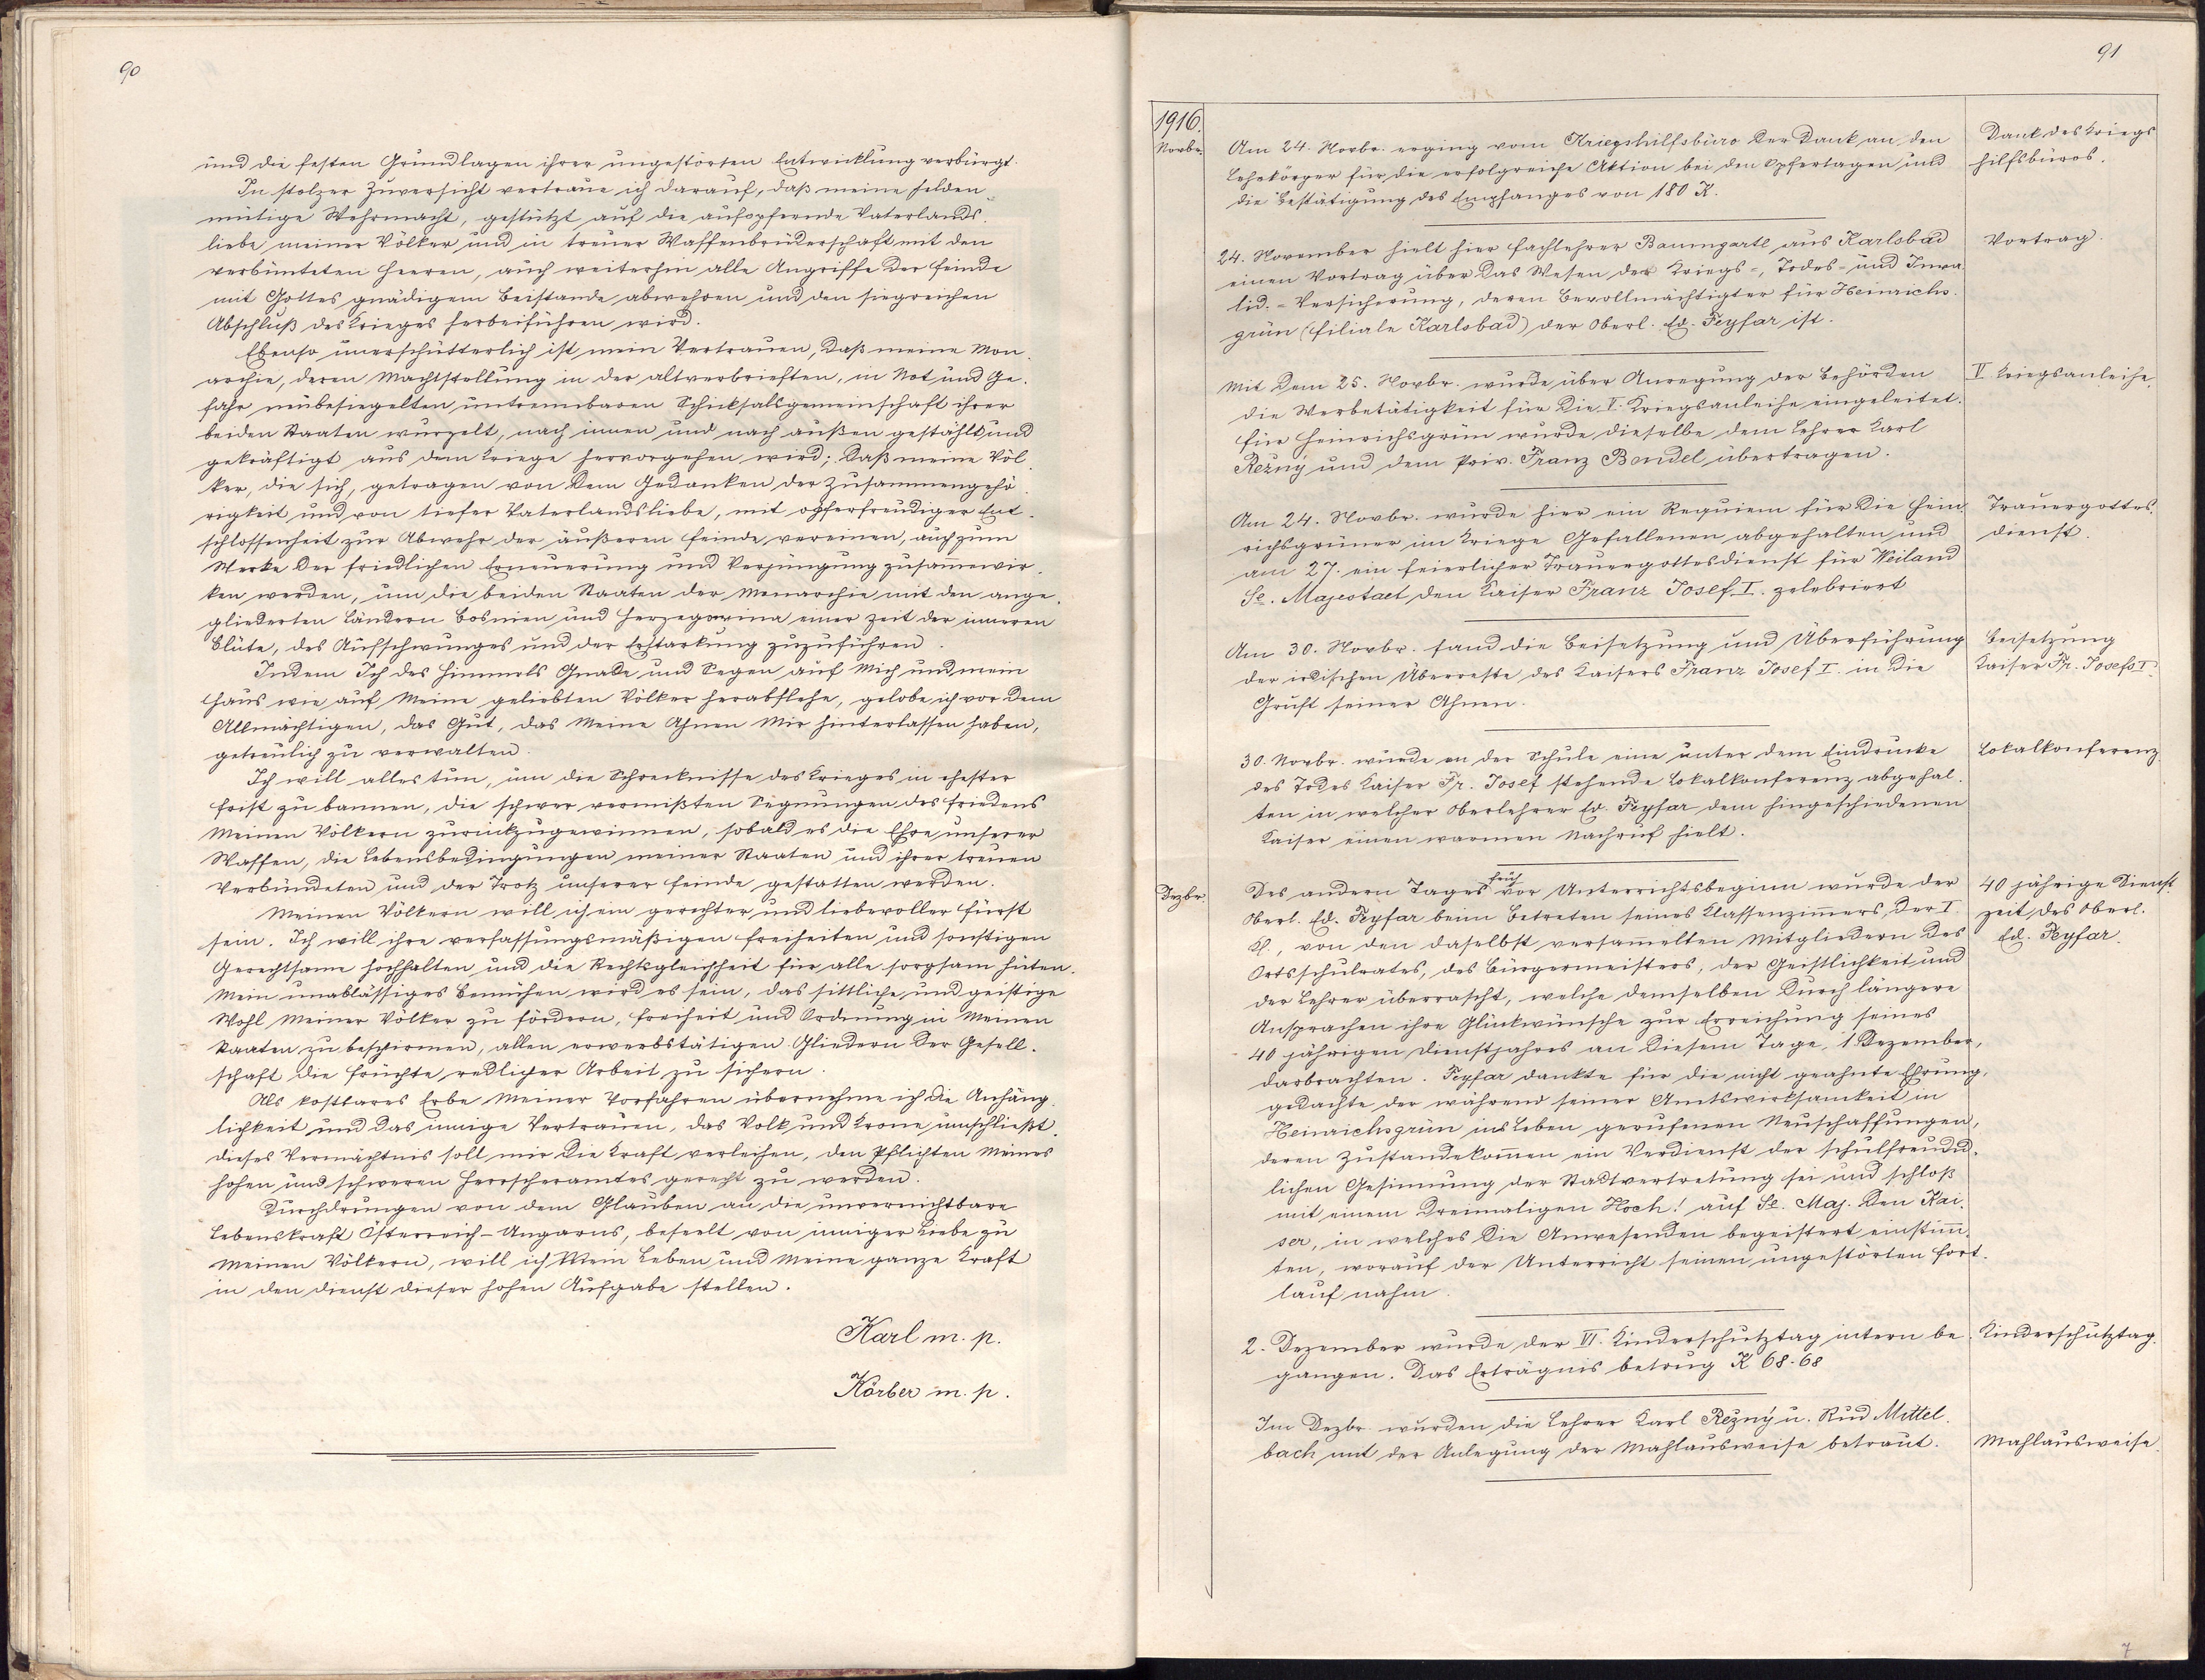 90
und die festen Grundlagen ihrer ungestörten Entwicklung verbürgt.
In stolzer Zuversicht vertraue ich darauf, daß meine helden
mütige Wehrmacht, gestützt auf die aufopfernde Vaterlands-
liebe meiner Völker und in treuer Waffenbrüderschaft mit den
verbünteten Heeren, auch weiterhin alle Angriffe der Feinde
mit Gottes gnädigem Beistande abwehren und den siegreichen
Abschluß des Krieges herbeiführen wird.
Ebenso unerschütterlich ist mein Vertrauen, daß meine Mon-
archie, deren Machtstellung in der altverbrieften, in Not und Ge-
fahr neubesiegelten untrennbaren Schicksalsgemeinschaft ihrer
beiden Staaten wurzelt, nach innen und nach außen gestählt und
gekräftigt aus dem Kriege hervorgehen wird; daß meine Völ-
ker, die sich, getragen von dem Gedanken der Zusammengehö-
rigkeit und von tiefer Vaterlandsliebe, mit opferfreudiger Ent-
schlossenheit zur Abwehr der äußeren Feinde vereinen, auch zum
Werke der friedlichen Erneuerung und Verjüngung zusam̄enwir-
ken werden, um die beiden Staaten der Monarchie mit den ange-
gliederten Ländern Bosnien und Herzegowina einer Zeit der inneren
Blüte, des Aufschwunges und der Erstarkung zuzuführen.
Indem Ich des Himmels Gnade und Segen auf Mich und mein
Haus wie auf Meine geliebten Völker herabflehe, gelobe ich vor dem
Allmächtigen, das Gut, das Meine Ahnen Mir hinterlassen haben,
getreulich zu verwalten.
Ich will alles tun, um die Schrecknisse des Krieges in ehester
Frist zu bannen, die schwer vermißten Segnungen des Friedens
Meinen Völkern zurückzugewinnen, sobald es die Ehre unserer
Waffen, die Lebensbedingungen meiner Staaten und ihrer treuen
Verbündeten und der Trotz unserer Feinde gestatten werden.
Meinen Völkern will ich ein gerechter und liebevoller Fürst
sein. Ich will ihre verfassungsmäßigen Freiheiten und sonstigen
Gerechtsame hochhalten und die Rechtsgleichheit für alle sorgsam hüten.
Mein unablässiges Bemühen wird es sein, das sittliche und geistige
Wohl Meiner Völker zu fördern, Freiheit und Ordnung in Meinen
Staaten zu beschirmen, allen erwerbstätigen Gliedern der Gesell-
schaft die Früchte redlicher Arbeit zu sichern.
Als kostbares Erbe Meiner Vorfahren übernehme ich die Anhäng-
lichkeit und das innige Vertrauen, das Volk und Krone umschließt.
Dieses Vermächtnis soll mir die Kraft verleihen, den Pflichten Meines
hohen und schweren Herrscheramtes gerecht zu werden.
Durchdrungen von dem Glauben an die unvernichtbare
Lebenskraft Österreich-Ungarns, beseelt von inniger Liebe zu
Meinen Völkern, will ich Mein Leben und Meine ganze Kraft
in den Dienst dieser hohen Aufgabe stellen.
Karl m. p.
Körber m. p.
91
1916.
Novbr.
Am 24. Novbr. erging vom Kriegshilfsbüro der Dank an den
Lehrkörper für die erfolgreiche Aktion bei den Opfertagen und
die Bestätigung des Empfanges von 180 K.
Dank des Kriegs
hilfsbüros.
24. November hielt hier Fachlehrer Baumgartl aus Karlsbad
einen Vortrag über das Wesen der Kriegs-, Todes- und Inva-
lid.-Versicherung, deren Bevollmächtigter für Heinrichs-
grün (Filiale Karlsbad) der Oberl. Ed. Feyfar ist.
Vortrag.
Mit dem 25. Novbr. wurde über Anregung der Behörden
die Werbetätigkeit für die V. Kriegsanleihe eingeleitet.
Für Heinrichsgrün wurde dieselbe dem Lehrer Karl
Režný und dem Priv. Franz Bendel übertragen.
V Kriegsanleihe.
Am 24. Novbr. wurde hier ein Requiem für die Hein-
richsgrüner im Kriege Gefallenen abgehalten und
am 27. ein feierlicher Trauergottesdienst für Weiland
Se. Majestaet den Kaiser Franz Josef I. zelebriert
Trauergottes-
dienst.
Am 30. Novbr. fand die Beisetzung und Überführung
der irdischen Überreste des Kaisers Franz Josef I. in die
Gruft seiner Ahnen.
Beisetzung
Kaiser Fr. Josefs I.
30. Novbr. wurde an der Schule eine unter dem Eindrucke
des Todes Kaiser Fr. Josef stehende Lokalkonferenz abgehal-
ten in welcher Oberlehrer Ed. Feyfar dem hingeschiedenen
Kaiser einen warmen Nachruf hielt.
Lokalkonferenz.
Dezbr.
früh
Des andern Tages vor Unterrichtsbeginn wurde der
Oberl. Ed. Feyfar beim Betreten seines Klassenzim̄ers, der I
Kl., von den daselbst versam̄elten Mitgliedern des
Ortsschulrates, des Bürgermeisters, der Geistlichkeit und
der Lehrer überrascht, welche demselben durch längere
Ansprachen ihre Glückwünsche zur Erreichung seines
40 jährigen Dienstjahres an diesem Tage, 1. Dezember,
darbrachten. Feyfar dankte für die nicht geahnte Ehrung,
gedachte der während seiner Amtswirksamkeit in
Heinrichsgrün ins Leben gerufenen Neuschaffungen,
deren Zustandekom̄en ein Verdienst der schulfreund-
lichen Gesinnung der Stadtvertretung sei und schloß
mit einem dreimaligen Hoch! auf Se. Maj. den Kai-
ser, in welches die Anwesenden begeistert einstim̄-
ten, worauf der Unterricht seinen ungestörten Fort-
lauf nahm.
40 jährige Dienst-
zeit des Oberl.
Ed. Feyfar.
2. Dezember wurde der VI. Kinderschutztag intern be-
gangen. Das Erträgnis betrug K 68.68
Kinderschutztag.
Im Dezbr. wurden die Lehrer Karl Režný u. Rud Mittel-
bach mit der Anlegung der Mahlausweise betraut.
Mahlausweise.
7